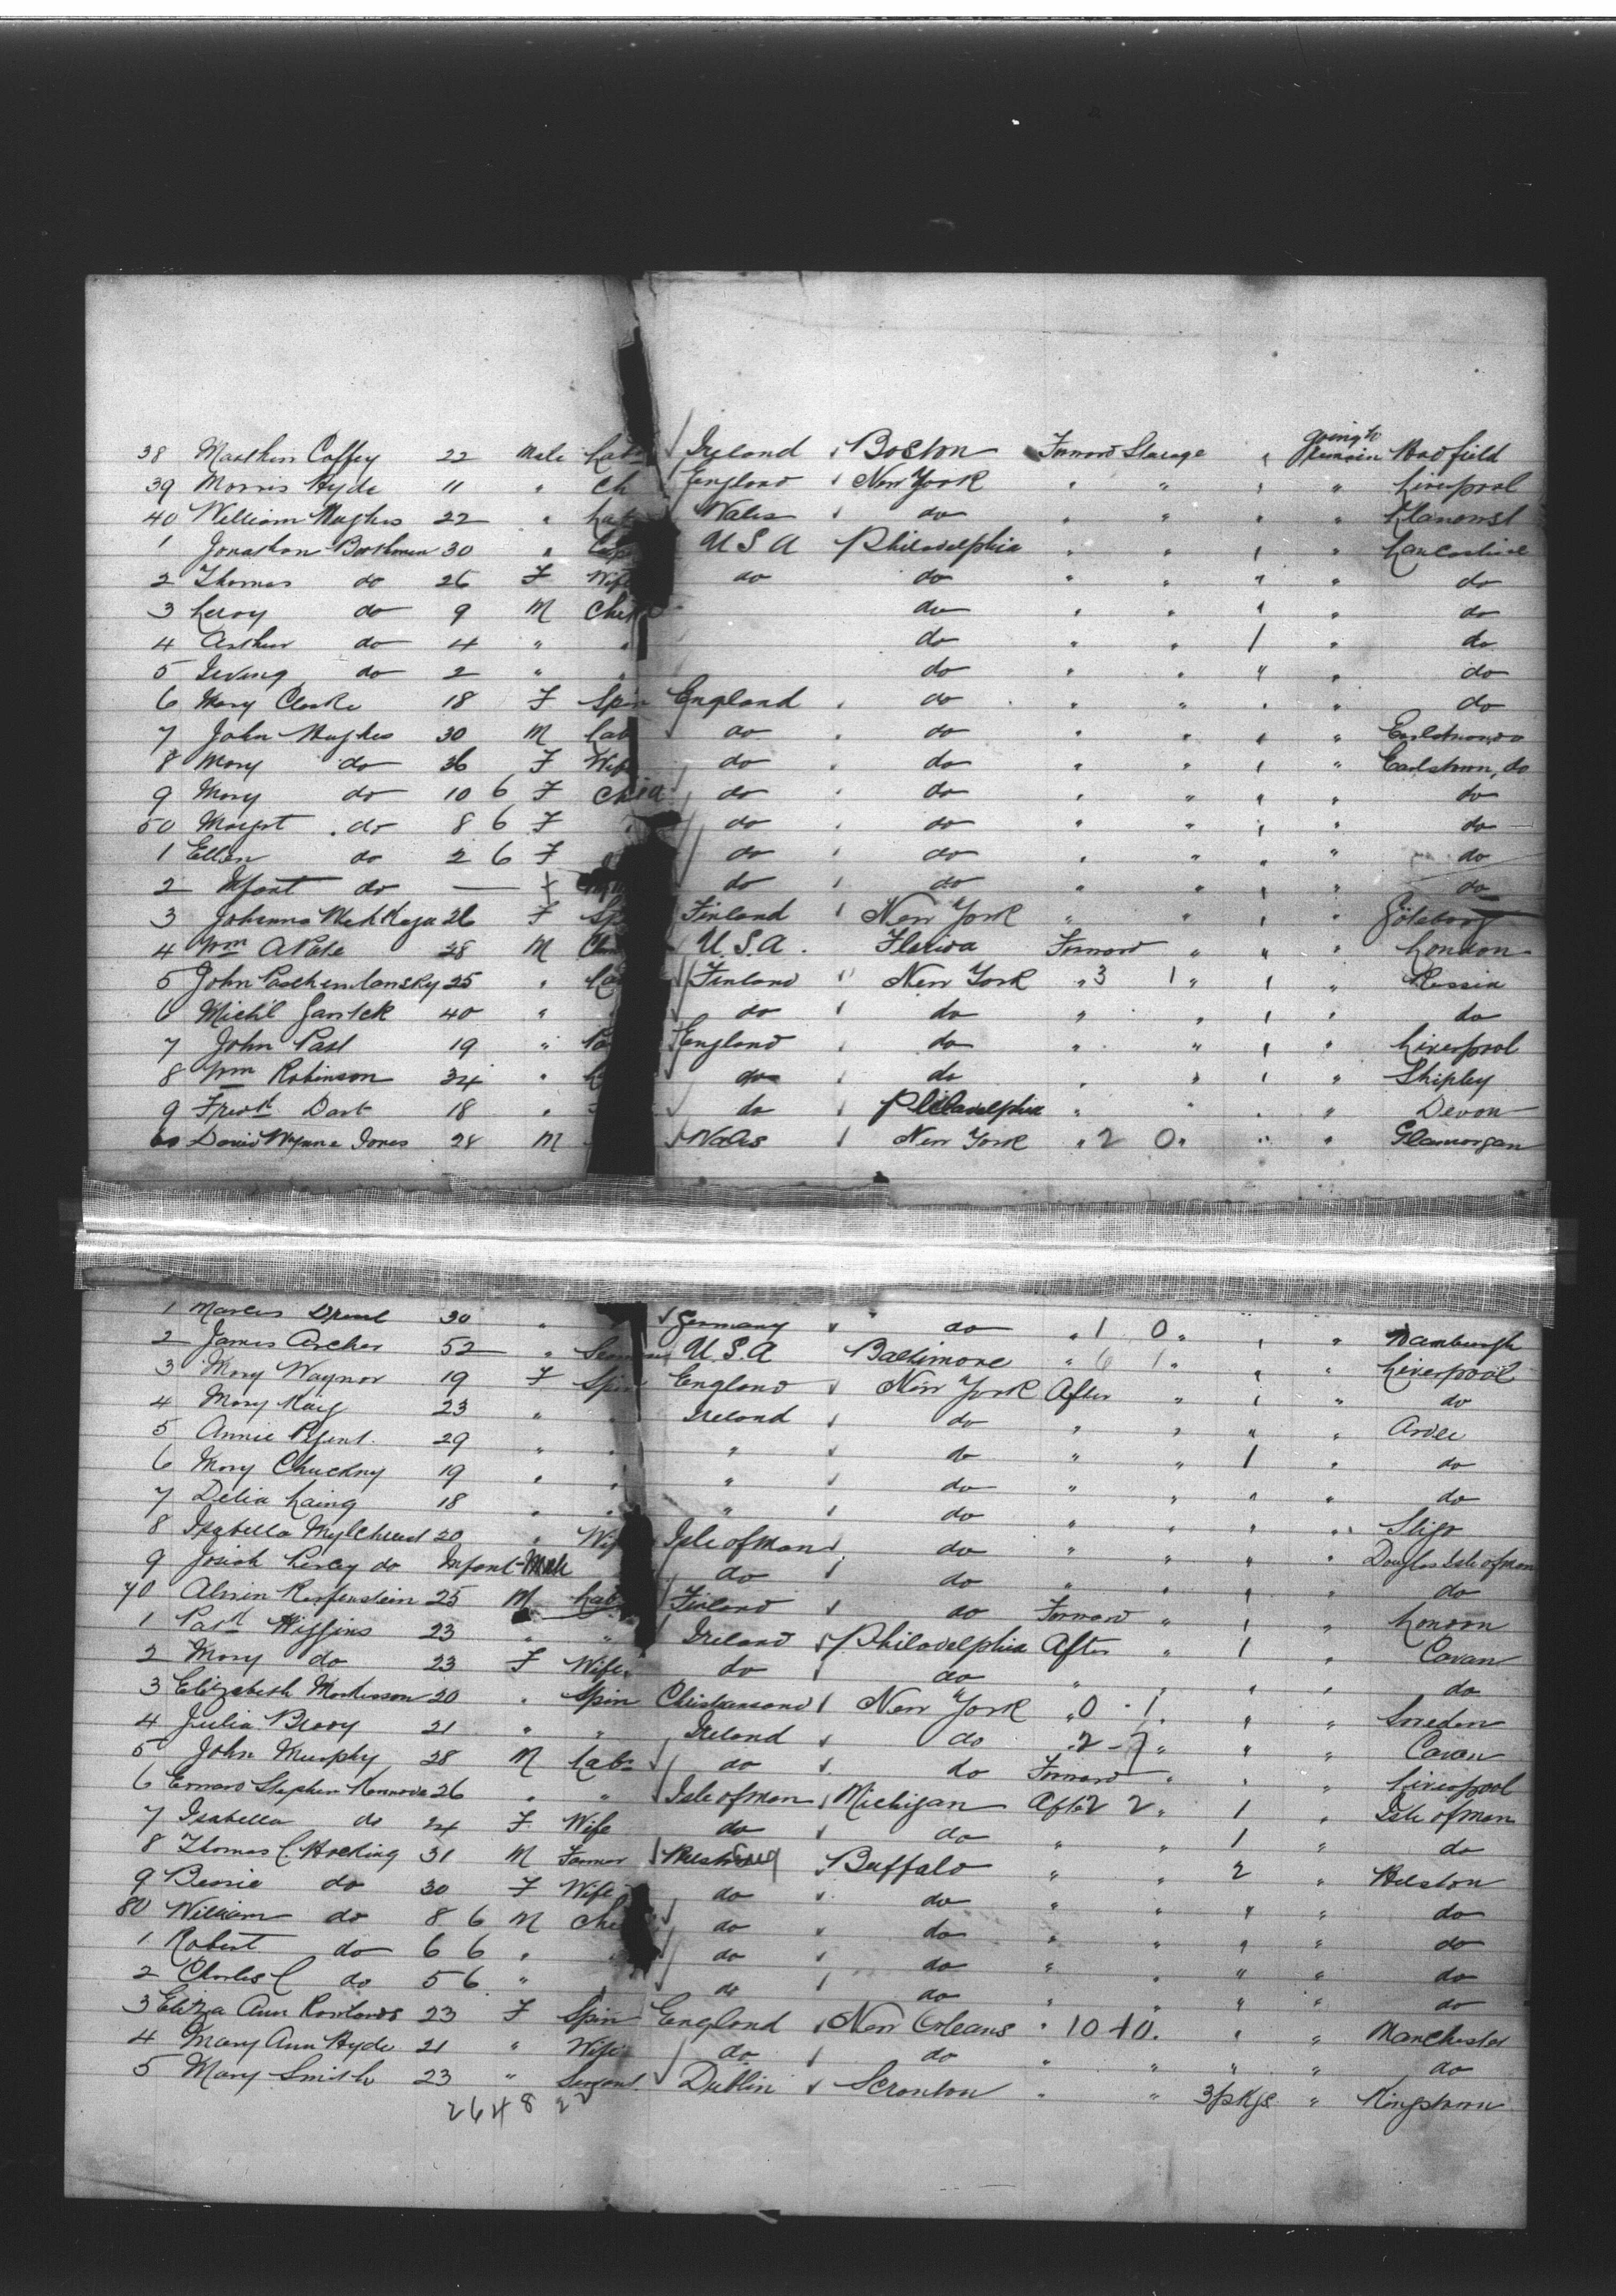 38 Matthew Coffey 22 Male Lab Ireland Boston Forward Stearage " going to remain Hadfield
39 Morris Hyde 11 " Ch England New York " " " " Liverpool
40 William Hughes 22 " Lab Wales do " " " "
1 Jonathan 30 " U S A Philadelphia " " 1 " Lancashire
2 Thomas do 26 F Wife do do " " " " do
3 Leroy do 9 M Child do " " 1 " do
4 Arthur do 4 " " do " " 1 " do
5 Irving do 2 " do " " " " do
6 Mary Clarke 18 F Spin England do " " " " do
7 John Hughes 30 M Lab do do " " 1 "
8 Mary do 36 F Wife do do " " 1 " Earlstown, do
9 Mary do 10 6 F Child do do " " " " do
50 Margt do 8 6 F do do " " 1 " do
1 Ellen do 2 6 F do do " " " " do
2 Infant do — do do " " 1 " do
3 Johanna 26 F Sp Finland New York " " 1 " Göteborg
4 Wm A Pate 28 M U.S.A. Florida Forward " " " London
5 John 25 " La Finland New York " 3 1 " 1 " Russia
6 Michl 40 " do do " " 1 " do
7 John 19 " England do " " 1 " Liverpool
8 Wm Robinson 34 " L do do " " 1 " Shipley
9 Fredk Dart 18 " do Philadelphia " " " " Devon
60 David Wynne Jones 28 M Wales New York " 2 0 " " " Glamorgan
1 Marcus 30 " Germany do " 1 0 " 1 " Hamburgh
2 James Archer 52 " Seaman U.S.A Baltimore " 6 1 " " " Liverpool
3 Mary Waynor 19 F Spin England New York After " 1 " do
4 Mary 23 " " Ireland do " " " " Ardee
5 Annie 29 " " " do " " 1 " do
6 Mary 19 " " " do " " " " do
7 Delia Laing 18 " " " do " " " " Sligo
8 Isabella Mylchreest 20 " Wife Isle of Man do " " " " Douglas Isle of Man
9 Josiah Percy do Infant Male do do " " 1 " do
70 25 M Lab Finland do Forward " 1 " London
1 Patk Higgins 23 " " Ireland Philadelphia After " 1 " Cavan
2 Mary do 23 F Wife do do " " " " do
3 Elizabeth 20 " Spin Christiansand New York " 0 1 " " " Sweden
4 Julia Brady 21 " " Ireland do 2 - 7 " " " Cavan
5 John Murphy 28 M Lab do do Forward " " " Liverpool
6 Edward Stephen 26 " " Isle of Man Michigan After 2 2 " 1 " Isle of Man
7 Isabella do 24 F Wife do do " " 1 " do
8 Thomas C. Hocking 31 M Farmer Helston Eng Buffalo " " 2 " Helston
9 Bessie do 30 F Wife do do " " " " do
80 William do 8 6 M Child do do " " " " do
1 Robert do 6 6 " do do " " " " do
2 Charles C do 5 6 " do do " " " " do
3 Eliza Ann Rowlands 23 F Spin England New Orleans " 10 10 " " " Manchester
4 Mary Ann Hyde 21 " Wife do do " " " " do
5 Mary Smith 23 " Servant Dublin Scranton " " 3 pkgs " Kingstown
2648 22